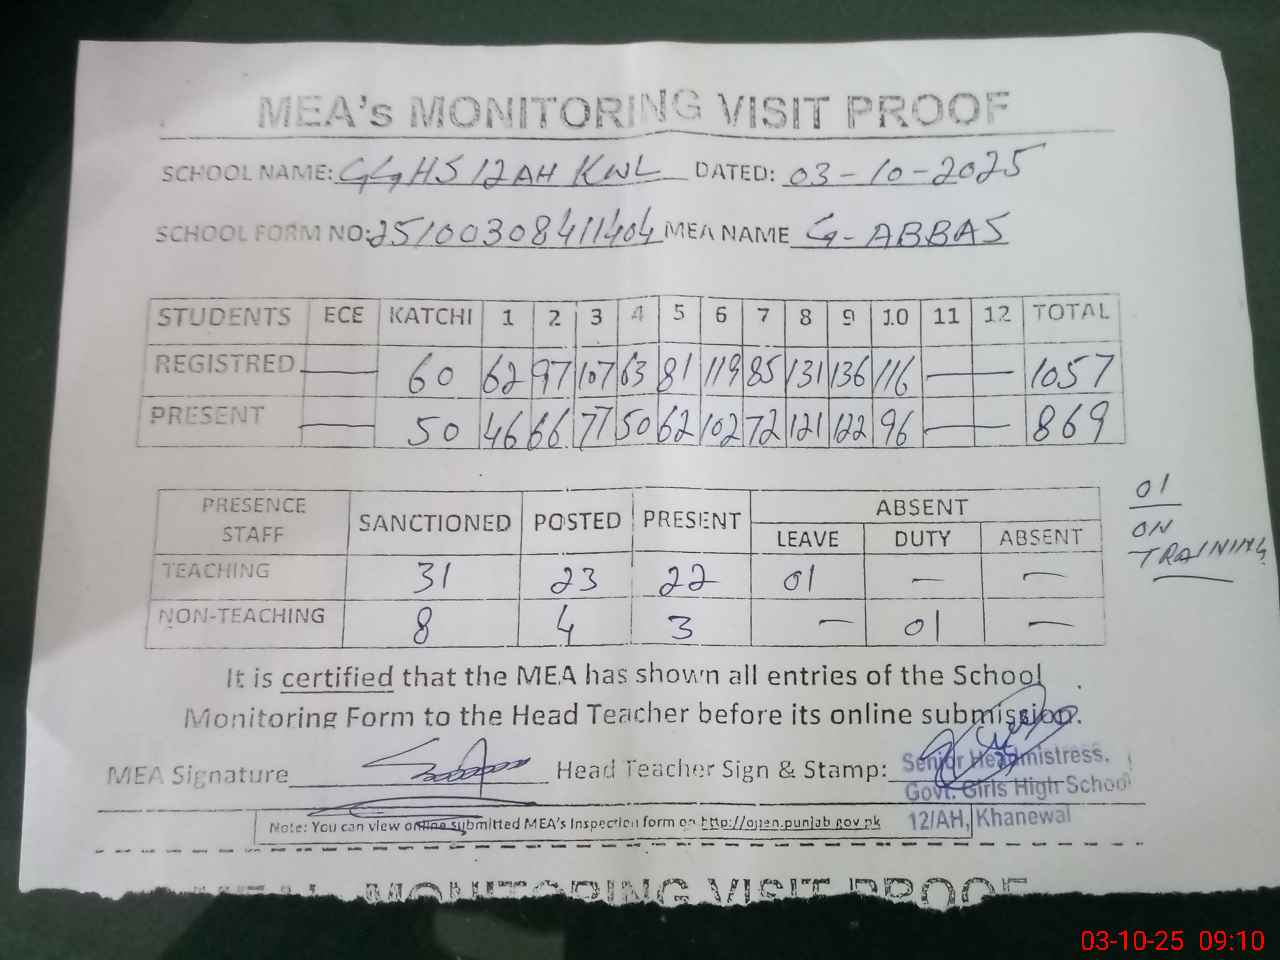 MEA's MONITORING VISIT PROOF
SCHOOL NAME: GGHS 12AH KWL DATED: 03-10-2025
SCHOOL FORM NO: 25100308411404 MEA NAME G-ABBAS
STUDENTS ECE KATCHI 1 2 3 4 5 6 7 8 9 10 11 12 TOTAL
REGISTRED — 60 62 97 107 63 81 119 85 131 136 116 — 1057
PRESENT — 50 46 66 77 50 62 102 72 121 122 96 — 869
PRESENCE STAFF SANCTIONED POSTED PRESENT ABSENT
LEAVE DUTY ABSENT
TEACHING 31 23 22 01 — —
NON-TEACHING 8 4 3 — 01 —
01
ON
TRAINING
It is certified that the MEA has shown all entries of the School
Monitoring Form to the Head Teacher before its online submission.
MEA Signature Head Teacher Sign & Stamp:
Senior Headmistress.
Govt. Girls High School
12/AH, Khanewal
Note: You can view online submitted MEA's Inspection form on http://open.punjab.gov.pk
MONITORING VISIT PROOF
03-10-25 09:10